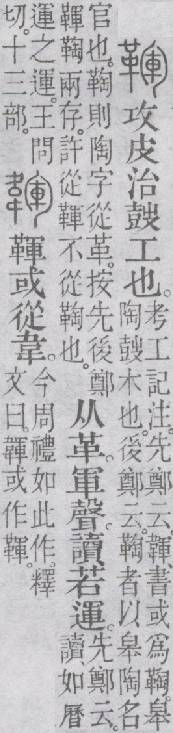 䩵攻皮治鼔工也。考工記注。先鄭云。韗、書或爲鞠。皋陶鼔木也。後鄭云。鞠者以皋陶名
官也。鞠則陶字從革。按先後鄭韗鞠兩存。許從韗不從鞠也。从革。軍聲。讀若運。先鄭云。讀如曆
運之運。王問切。十三部。韗韗或從韋。今周禮如此作。釋文曰。韗或作䩵。